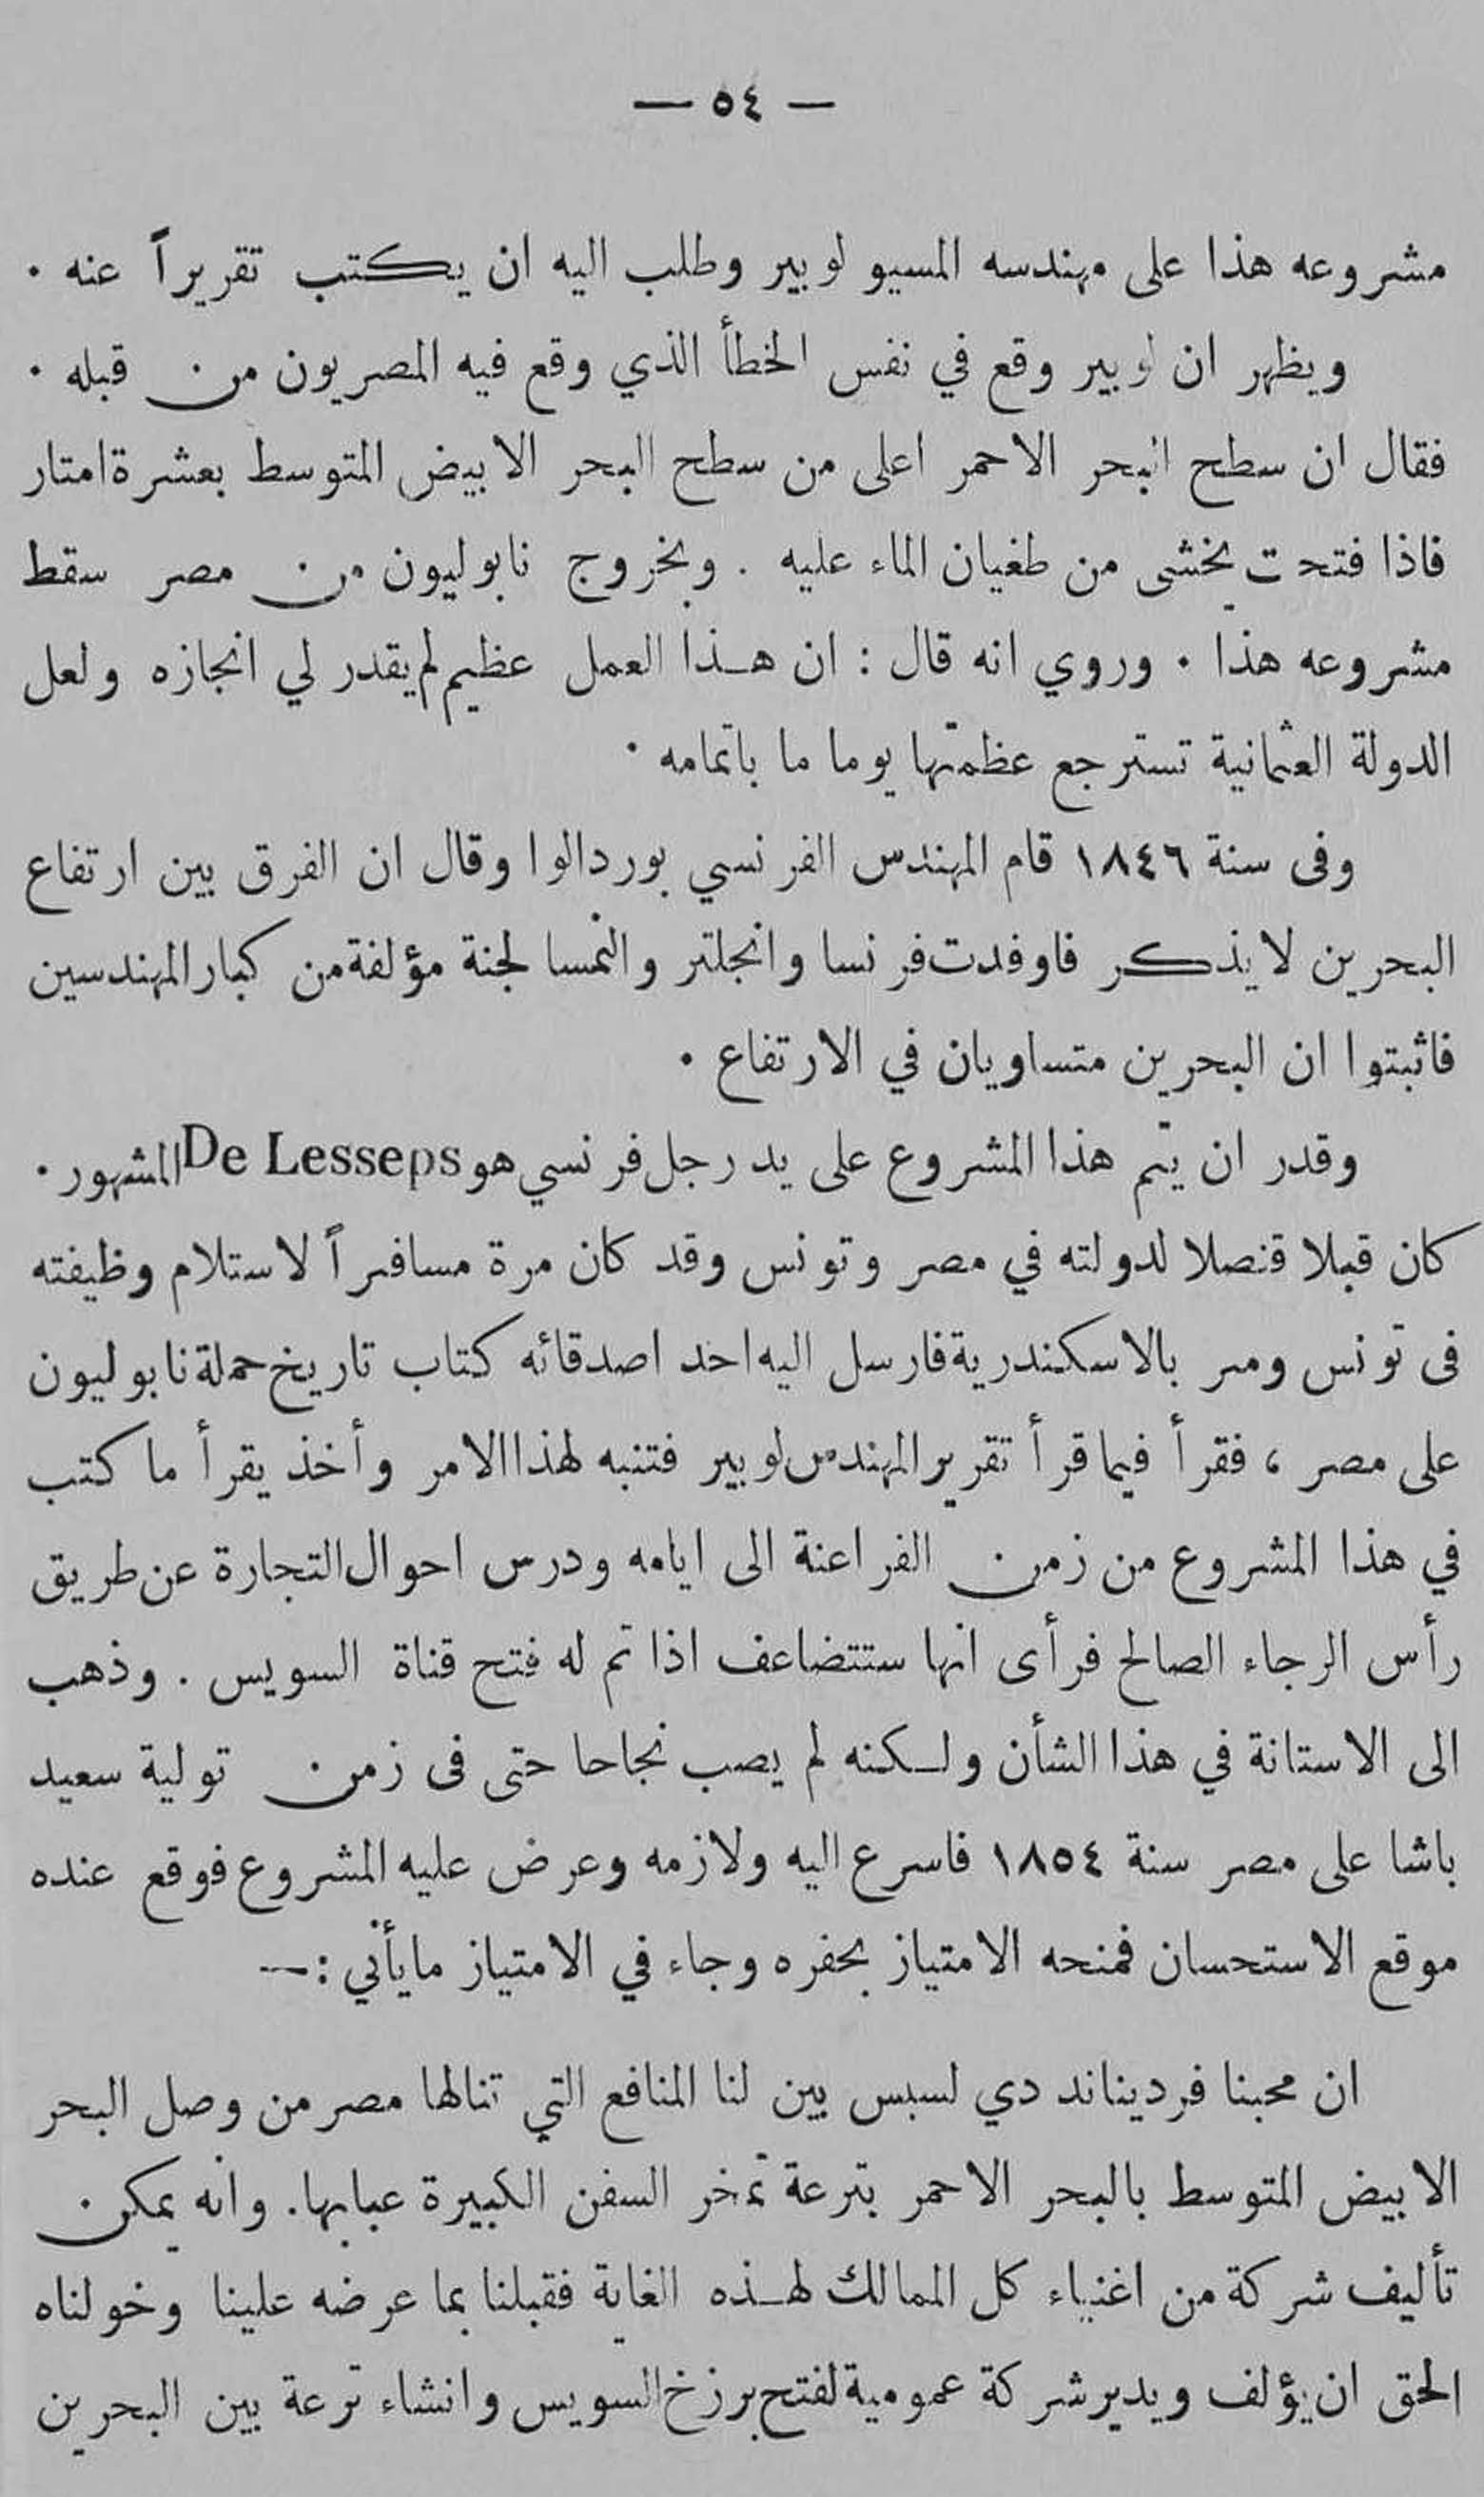 — ٥٤ —
مشروعه هذا على مهندسه المسيو لوبير وطلب اليه ان يكتب تقريراً عنه .
ويظهر ان لوبير وقع في نفس الخطأ الذي وقع فيه المصريون من قبله .
فقال ان سطح البحر الاحمر اعلى من سطح البحر الابيض المتوسط بعشرة امتار
فاذا فتحت يخشى من طغيان الماء عليه . وبخروج نابوليون من مصر سقط
مشروعه هذا . وروي انه قال : ان هذا العمل عظيم لم يقدر لي انجازه ولعل
الدولة العثمانية تسترجع عظمتها يوما ما باتمامه .
وفى سنة ١٨٤٦ قام المهندس الفرنسي بوردالوا وقال ان الفرق بين ارتفاع
البحرين لا يذكر فاوفدت فرنسا وانجلتر والنمسا لجنة مؤلفة من كبار المهندسين
فاثبتوا ان البحرين متساويان في الارتفاع .
وقدر ان يتم هذا المشروع على يد رجل فرنسي هو De Lesseps المشهور .
كان قبلا قنصلا لدولته في مصر وتونس وقد كان مرة مسافراً لاستلام وظيفته
فى تونس ومر بالاسكندرية فارسل اليه احد اصدقائه كتاب تاريخ حملة نابوليون
على مصر ، فقرأ فيما قرأ تقرير المهندس لوبير فتنبه لهذا الامر وأخذ يقرأ ما كتب
في هذا المشروع من زمن الفراعنة الى ايامه ودرس احوال التجارة عن طريق
رأس الرجاء الصالح فرأى انها ستتضاعف اذا تم له فتح قناة السويس . وذهب
الى الاستانة في هذا الشأن ولكنه لم يصب نجاحا حتى فى زمن تولية سعيد
باشا على مصر سنة ١٨٥٤ فاسرع اليه ولازمه وعرض عليه المشروع فوقع عنده
موقع الاستحسان فمنحه الامتياز بحفره وجاء في الامتياز ما يأتي :—
ان محبنا فرديناند دي لسبس بين لنا المنافع التي تنالها مصر من وصل البحر
الابيض المتوسط بالبحر الاحمر بترعة تمخر السفن الكبيرة عبابها. وانه يمكن
تأليف شركة من اغنياء كل الممالك لهذه الغاية فقبلنا بما عرضه علينا وخولناه
الحق ان يؤلف ويدير شركة عمومية لفتح برزخ السويس وانشاء ترعة بين البحرين